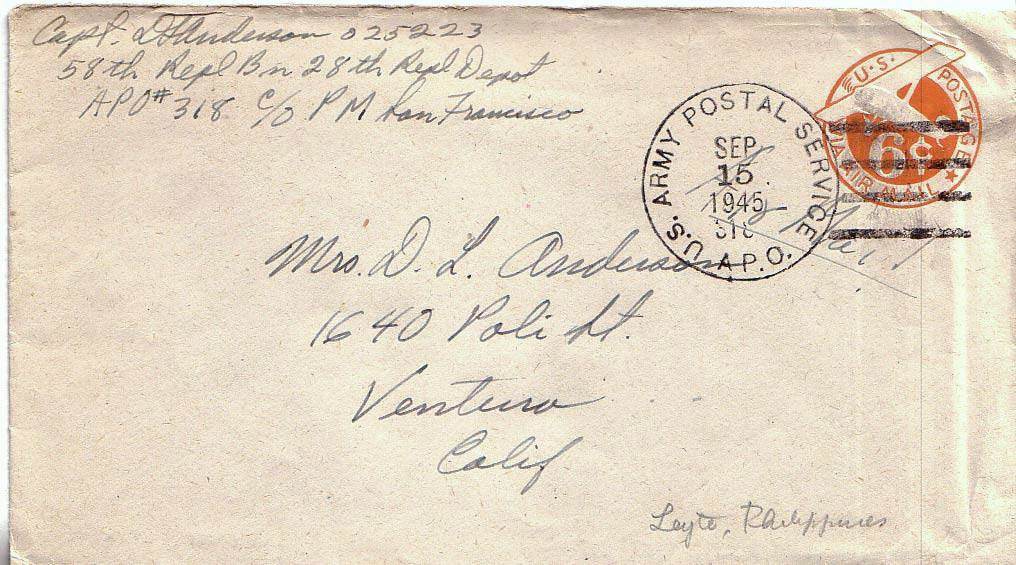 Capt. D L Anderson 025223
58th Repl Bn 28th Repl Depot
APO# 318 c/o P M San Francisco
U.S. ARMY POSTAL SERVICE
SEP
15
1945
318
A.P.O.
U.S. POSTAGE
6¢
VIA AIR MAIL
Mrs. D. L. Anderson
1640 Poli St.
Ventura
Calif
Leyte, Philippines